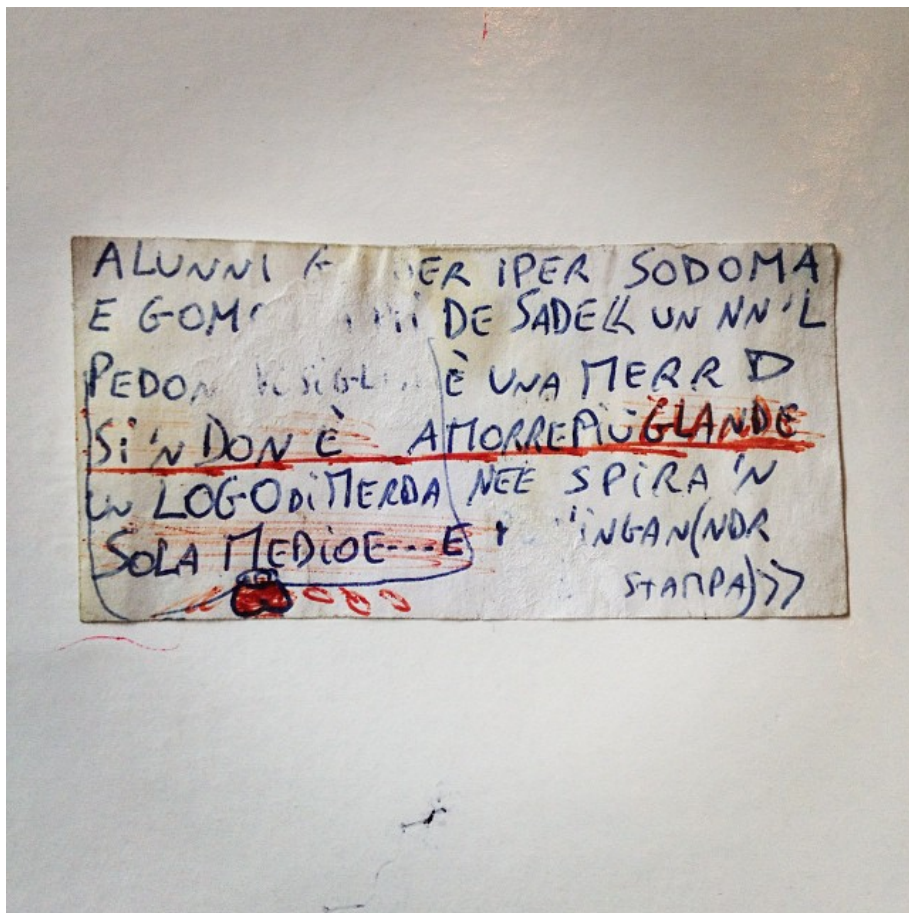 ALUNNI ER IPER SODOMA
E GOM DE SADE<< UN NN'L
PEDON È UNA MERR D
Si 'N DON È AMORREPIÙGLANDE
UN LOGODiMERDA NEE SPIRA 'N
SOLA MEDiOE---E 'iNGAN(NDR
STAMPA)>>